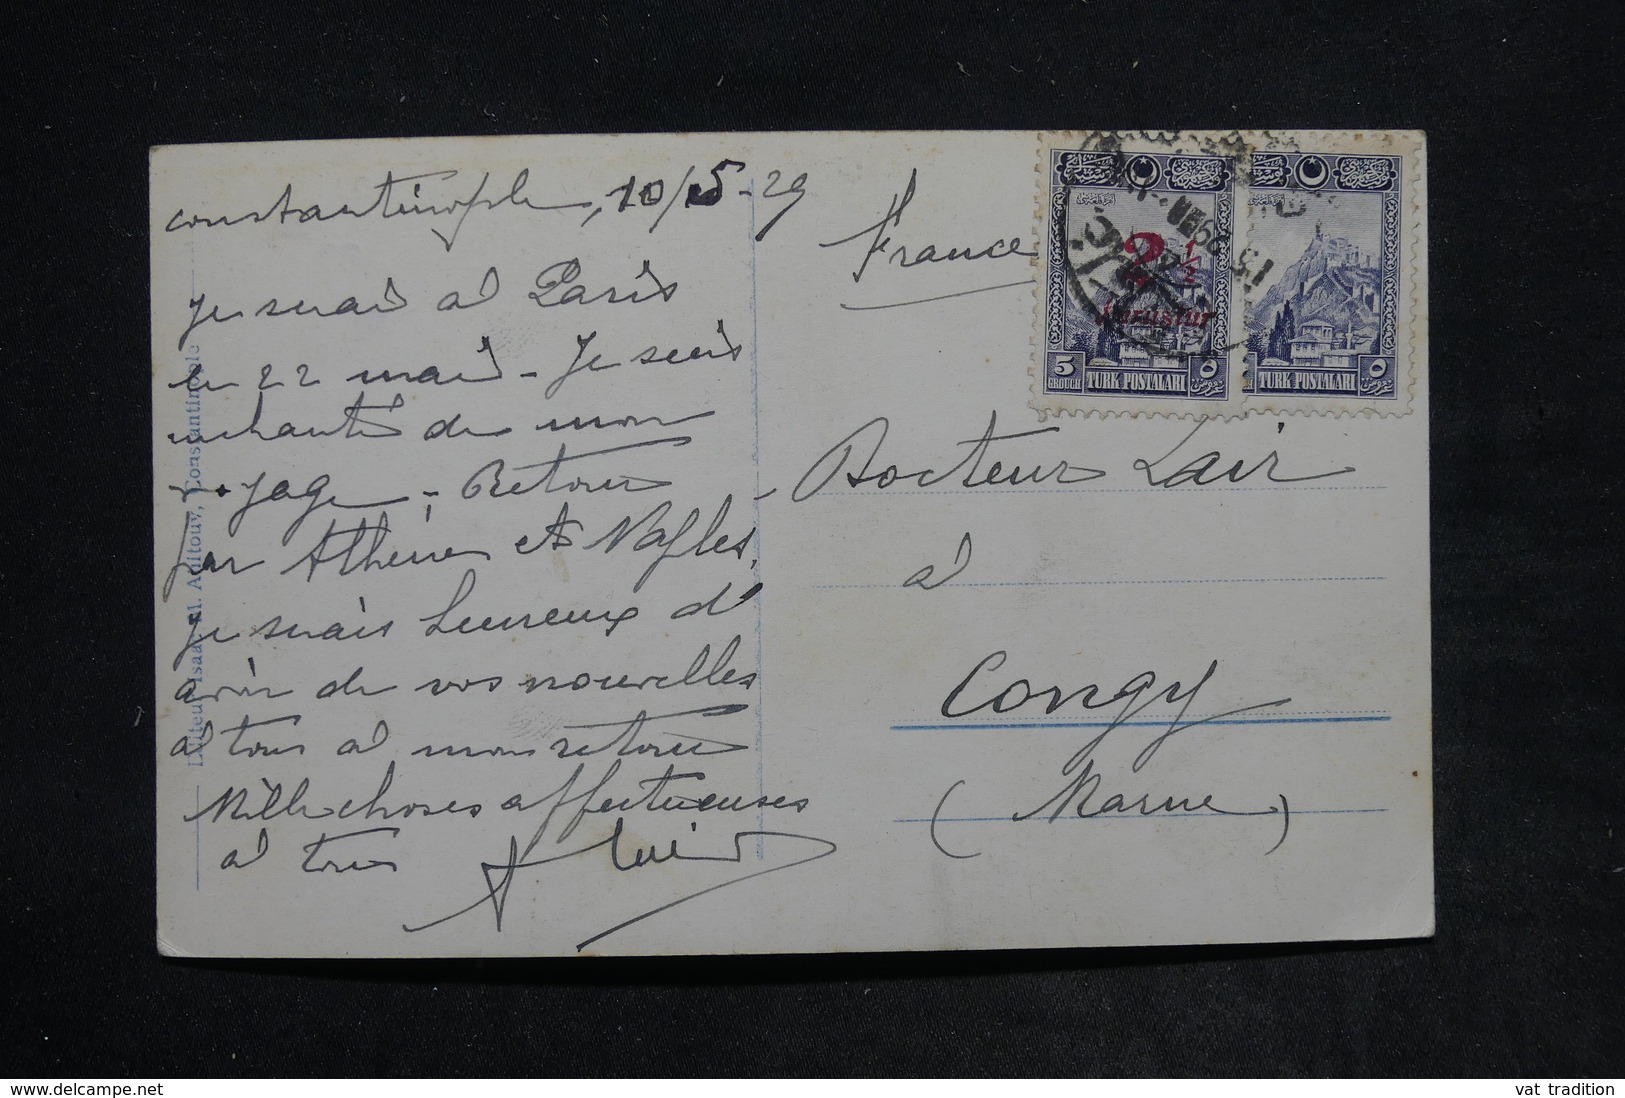 Constantinople, 10/5-29
Je serai à Paris
le 22 mai - Je suis
enchanté de mon
voyage - Retour
par Athènes et Naples,
Je serais heureux d'
avoir de vos nouvelles
à tous à mon retour
Mille choses affectueuses
à tous
France
Docteur Lair
à
Congy
(Marne)
2 1/2
Kuruştur
5
GROUCH
TURK POSTALARI
٥
غروش
TURK POSTALARI
٥
غروش
Editeur Isaac M. Ahitouv, Constantinople
delcampe.net
vat tradition